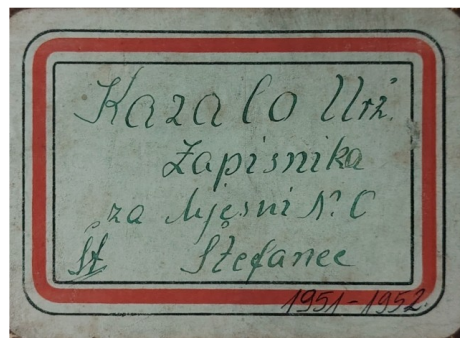 Kazalo Urž.
Zapisnika
za Mjesni N.O
Št Štefanec
1951-1952.